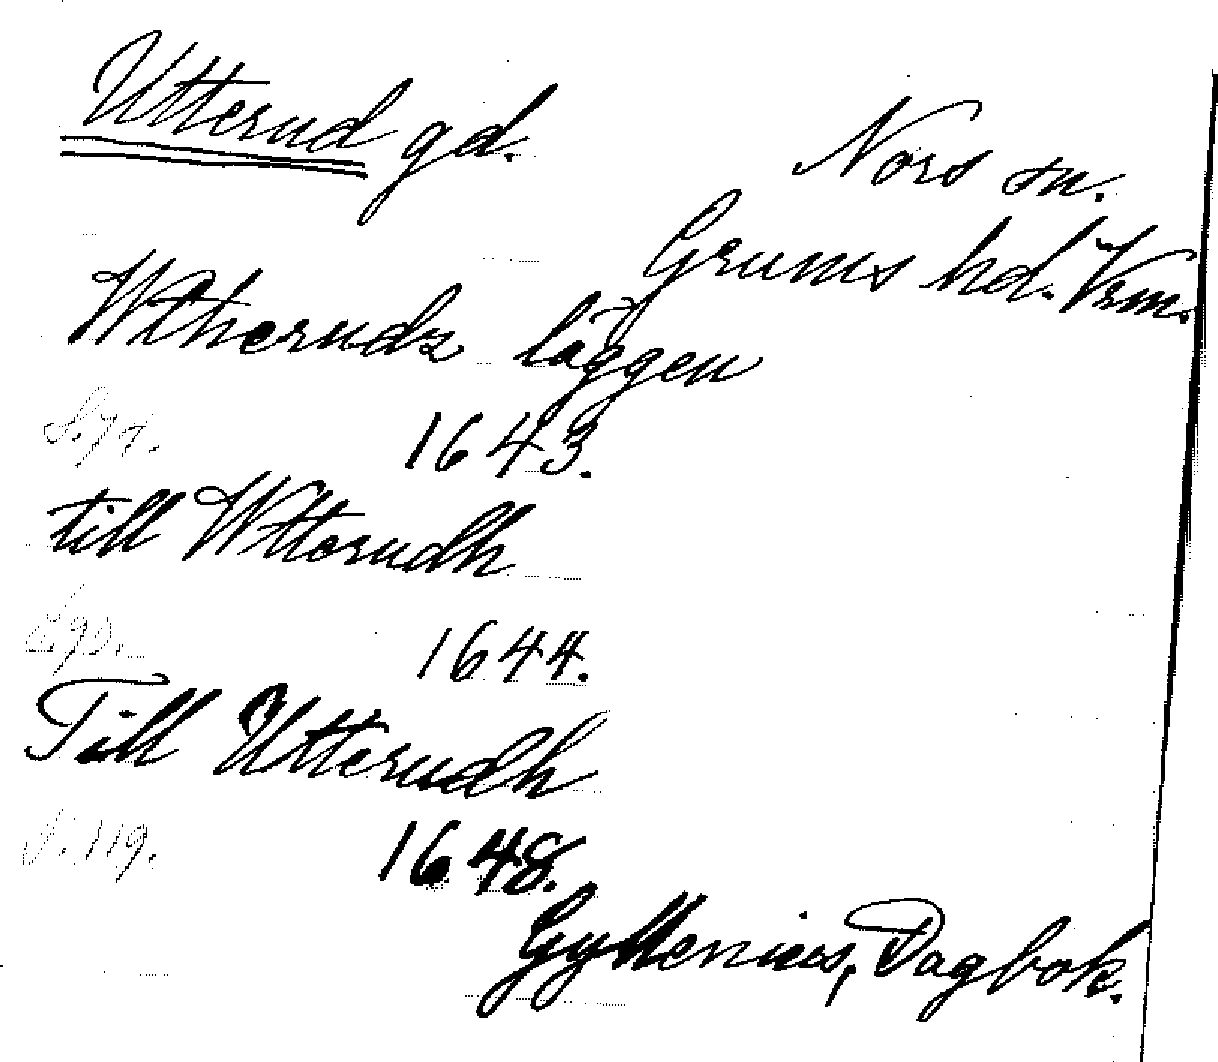 Utterud gd.
Nors sn.
Grums hd. Vrm.
Wtherudz läggen
S. 71. 1643.
till Wtterudh
S. 90. 1644.
Till Utterudh
S. 119. 1648.
Gyllenius, Dagbok.